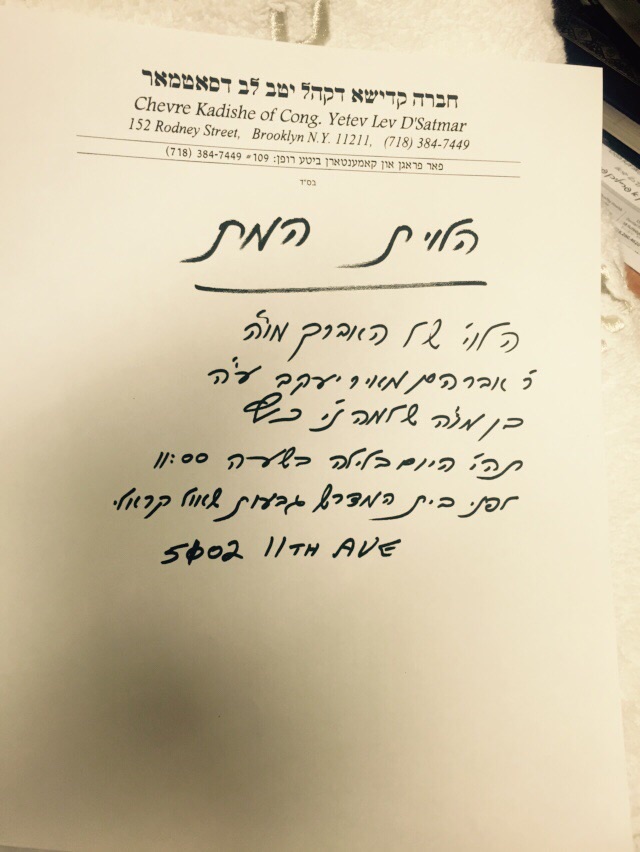 חברה קדישא דקהל יטב לב דסאטמאר
Chevre Kadishe of Cong. Yetev Lev D'Satmar
152 Rodney Street, Brooklyn N.Y. 11211, (718) 384-7449
פאר פראגן און קאמענטארן ביטע רופן: 109# 384-7449 (718)
בס״ד
הלוית המת
הלוי' של האברך מוה"ר
ר' אברהם מאיר יעקב ע"ה
בן מוה"ר שלמה ני'
תהי' היום בלילה בשעה 11:00
לפני בית המדרש גבעות שאול קראלי
5402 11TH AVE